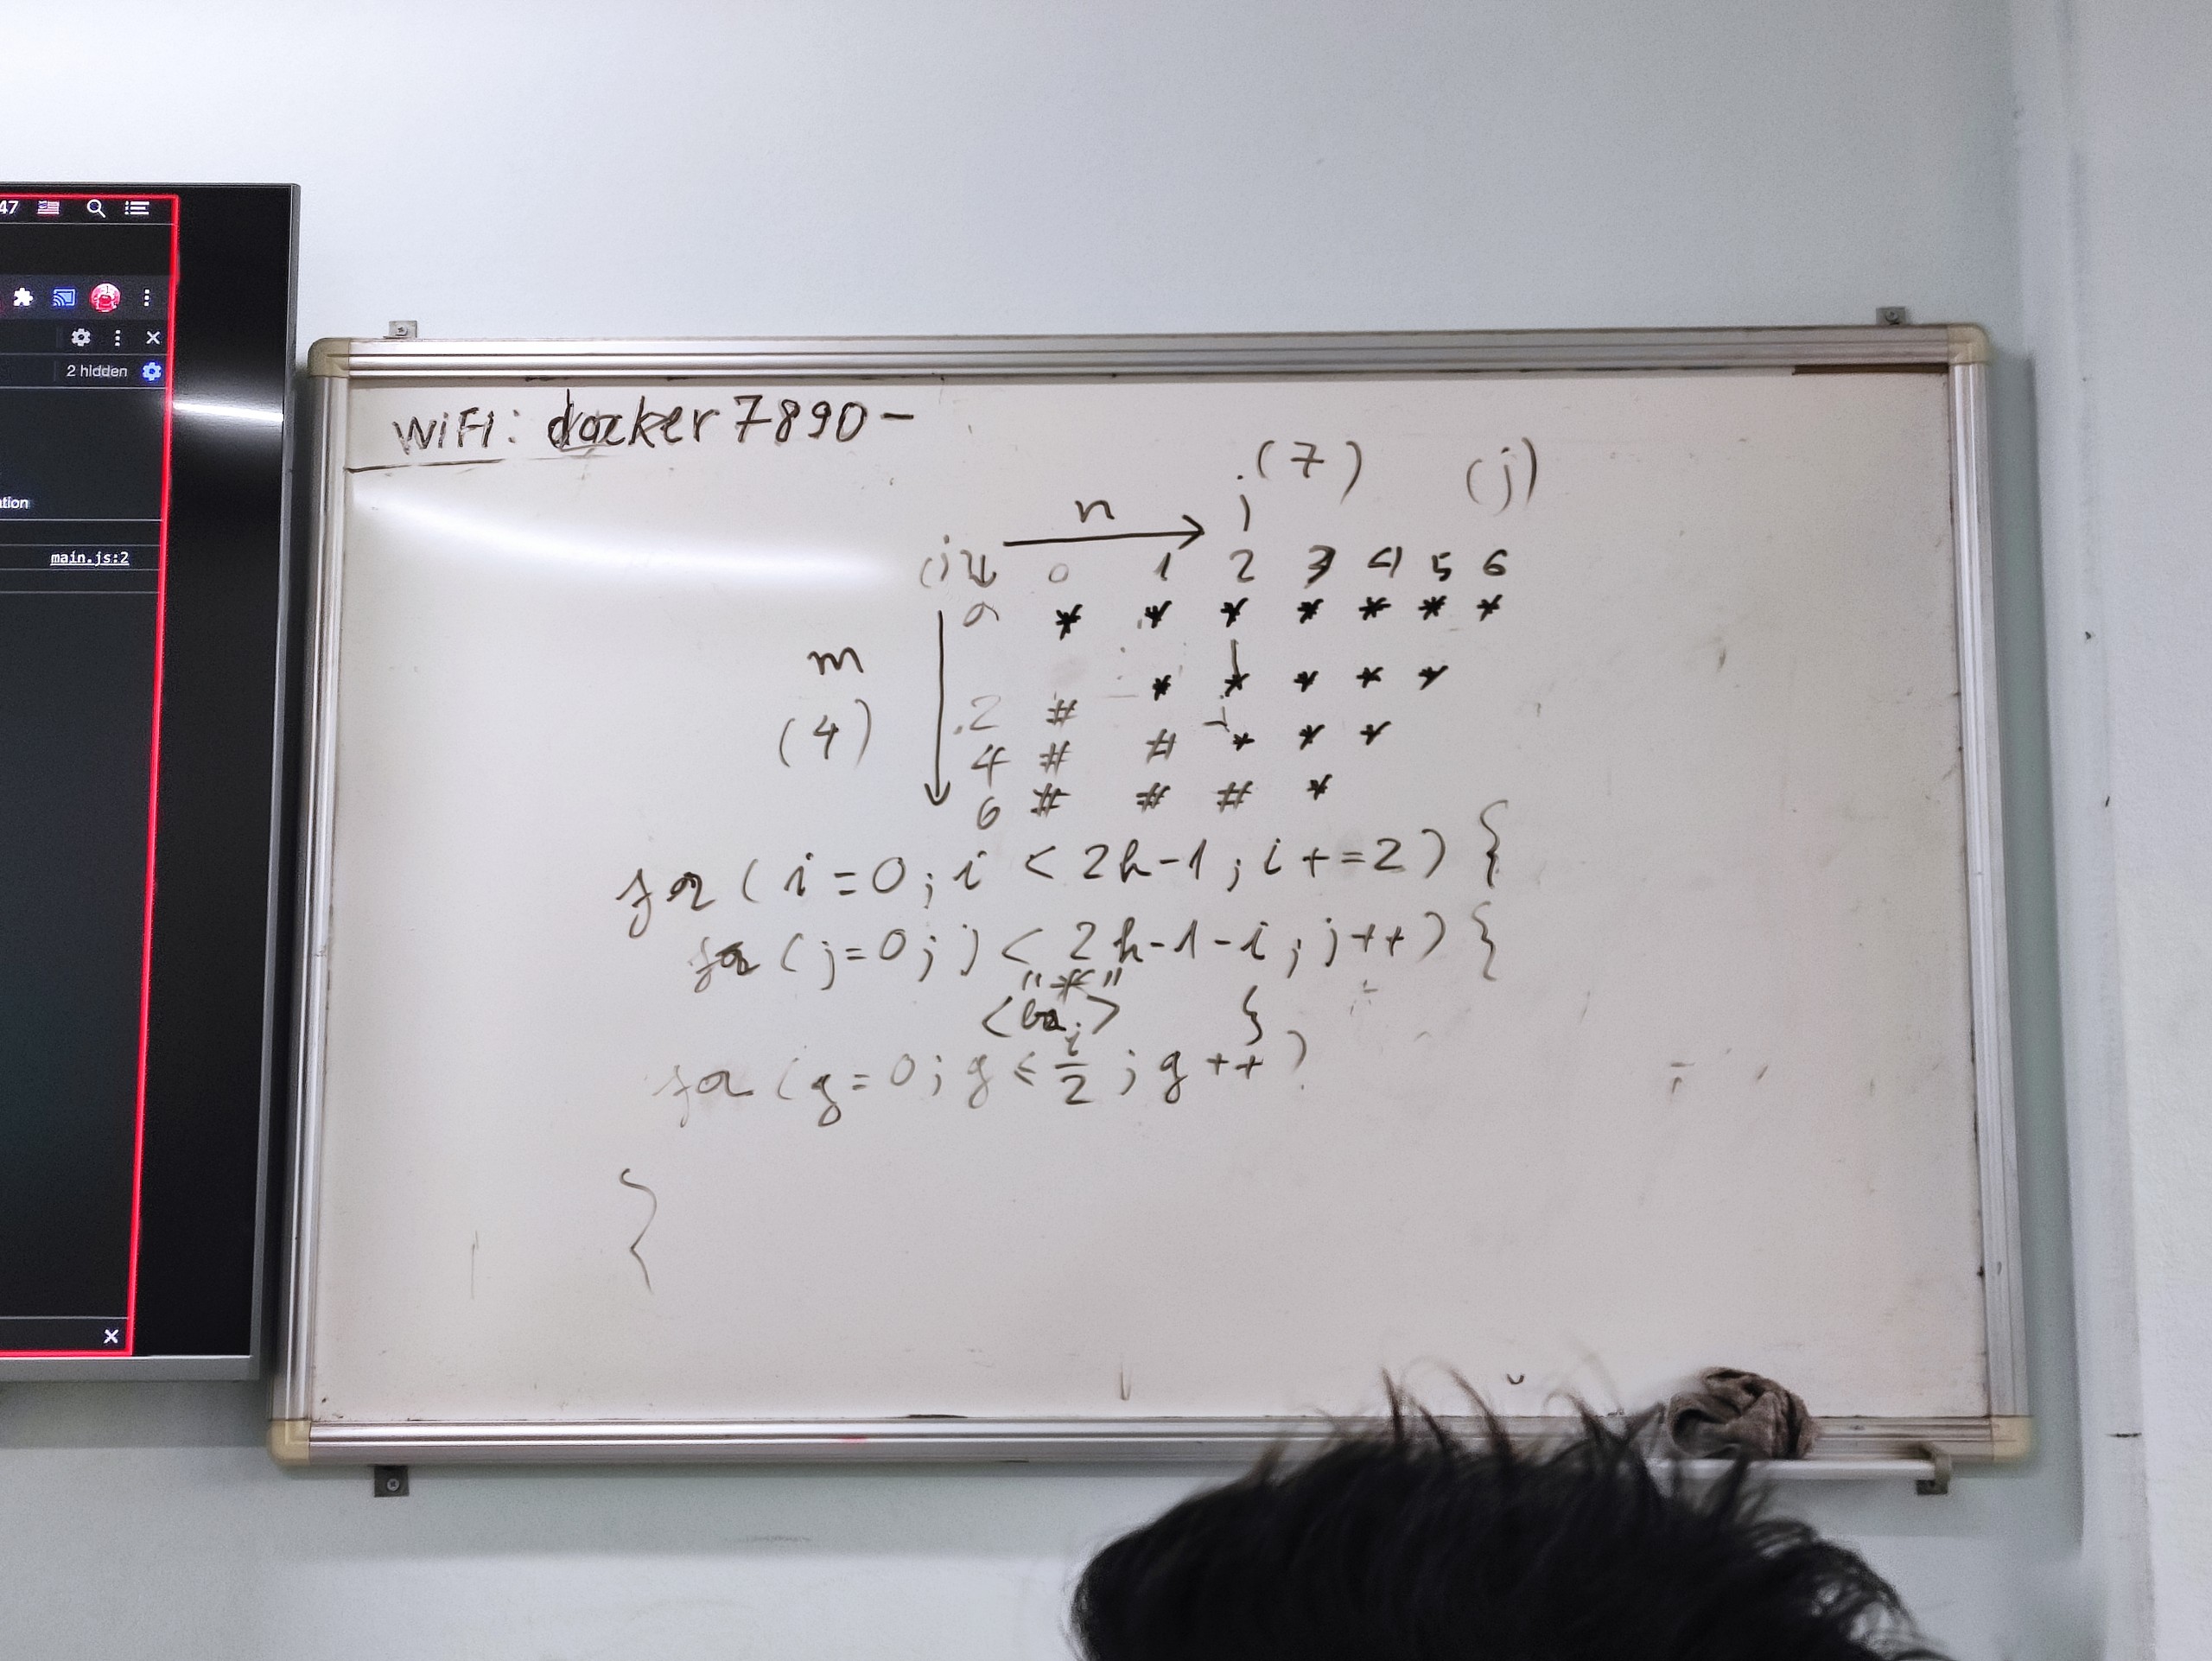 47
2 hidden
ation
main.js:2
WiFi: docker7890-
(7) (j)
n j
(i) 0 1 2 3 4 5 6
0 * * * * * * *
m
* * * * *
2 #
(4)
4 # # * * *
6 # # # *
for (i=0; i < 2h-1; i+=2) {
for (j=0; j < 2h-1-i; j++) {
"*"
<br> }
for (g=0; g ≤ i/2; g++)
}